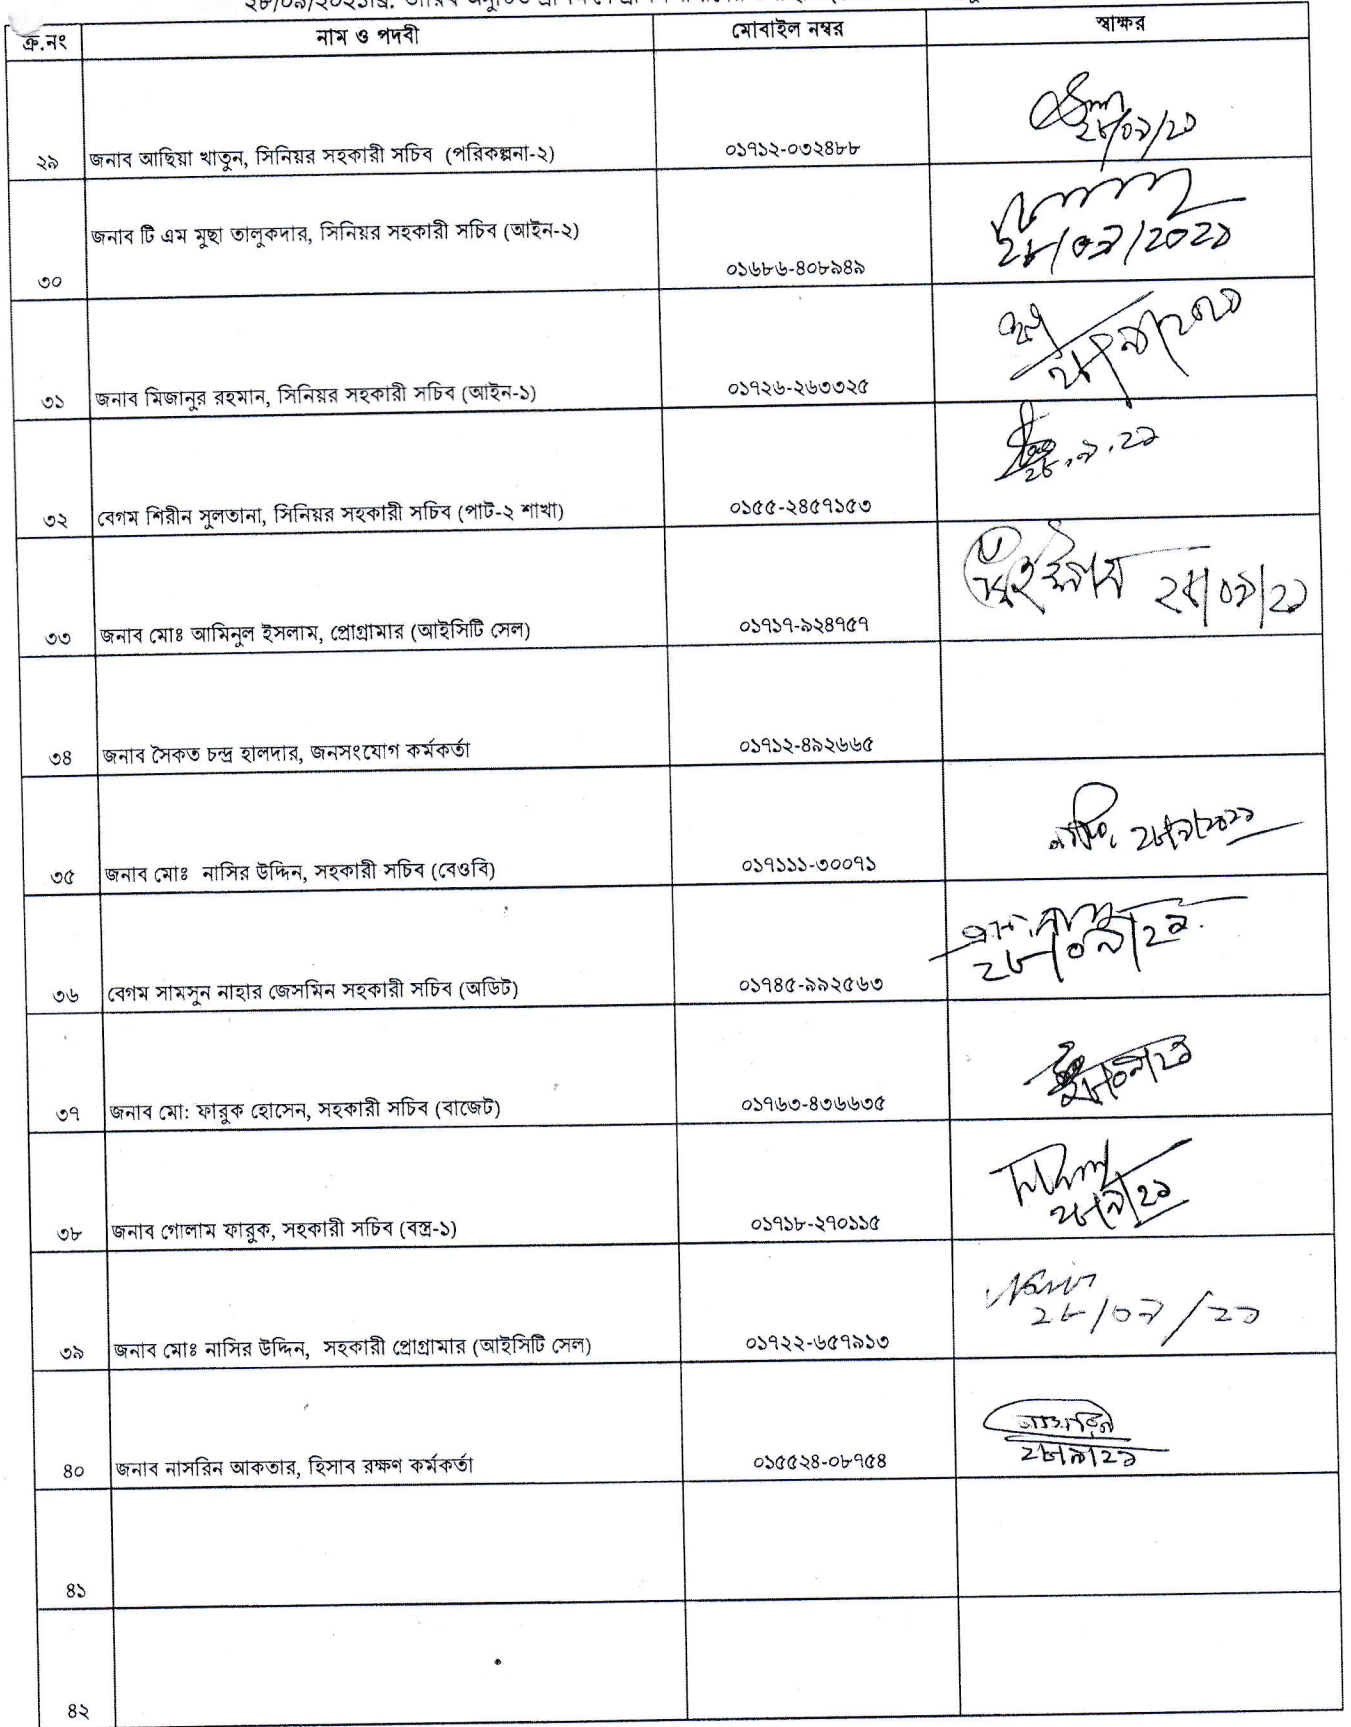 ক্র.নং নাম ও পদবী মোবাইল নম্বর স্বাক্ষর
২৮/০৯/২১
২৯ জনাব আছিয়া খাতুন, সিনিয়র সহকারী সচিব (পরিকল্পনা-২) ০১৭১২-০৩২৪৮৮
জনাব টি এম মুছা তালুকদার, সিনিয়র সহকারী সচিব (আইন-২) ২৮/০৯/২০২১
৩০ ০১৬৮৬-৪০৮৯৪৯
২৮/০৯/২০২১
৩১ জনাব মিজানুর রহমান, সিনিয়র সহকারী সচিব (আইন-১) ০১৭২৬-২৬৩৩২৫
২৮.৯.২১
৩২ বেগম শিরীন সুলতানা, সিনিয়র সহকারী সচিব (পাট-২ শাখা) ০১৫৫-২৪৫৭১৫৩
২৮/০৯/২১
৩৩ জনাব মোঃ আমিনুল ইসলাম, প্রোগ্রামার (আইসিটি সেল) ০১৭১৭-৯২৪৭৫৭
৩৪ জনাব সৈকত চন্দ্র হালদার, জনসংযোগ কর্মকর্তা ০১৭১২-৪৯২৬৬৫
২৮/৯/২০২১
৩৫ জনাব মোঃ নাসির উদ্দিন, সহকারী সচিব (বেওবি) ০১৭১১১-৩০০৭১
২৮/০৯/২১
৩৬ বেগম সামসুন নাহার জেসমিন সহকারী সচিব (অডিট) ০১৭৪৫-৯৯২৫৬৩
২৮/০৯/২১
৩৭ জনাব মো: ফারুক হোসেন, সহকারী সচিব (বাজেট) ০১৭৬৩-৪৩৬৬৩৫
২৮/৯/২১
৩৮ জনাব গোলাম ফারুক, সহকারী সচিব (বস্ত্র-১) ০১৭১৮-২৭০১১৫
২৮/০৯/২১
৩৯ জনাব মোঃ নাসির উদ্দিন, সহকারী প্রোগ্রামার (আইসিটি সেল) ০১৭২২-৬৫৭৯১৩
২৮/৯/২১
৪০ জনাব নাসরিন আকতার, হিসাব রক্ষণ কর্মকর্তা ০১৫৫২৪-০৮৭৫৪
৪১
৪২